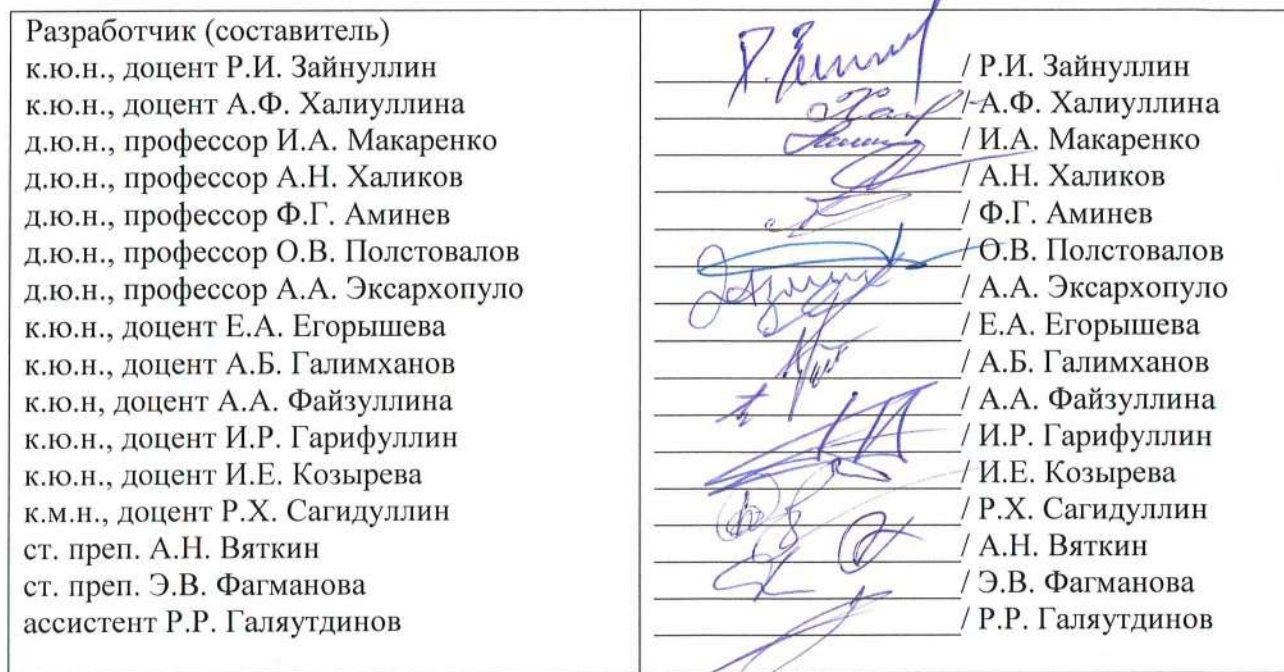 Разработчик (составитель)
к.ю.н., доцент Р.И. Зайнуллин
к.ю.н., доцент А.Ф. Халиуллина
д.ю.н., профессор И.А. Макаренко
д.ю.н., профессор А.Н. Халиков
д.ю.н., профессор Ф.Г. Аминев
д.ю.н., профессор О.В. Полстовалов
д.ю.н., профессор А.А. Эксархопуло
к.ю.н., доцент Е.А. Егорышева
к.ю.н., доцент А.Б. Галимханов
к.ю.н, доцент А.А. Файзуллина
к.ю.н., доцент И.Р. Гарифуллин
к.ю.н., доцент И.Е. Козырева
к.м.н., доцент Р.Х. Сагидуллин
ст. преп. А.Н. Вяткин
ст. преп. Э.В. Фагманова
ассистент Р.Р. Галяутдинов
/ Р.И. Зайнуллин
/ А.Ф. Халиуллина
/ И.А. Макаренко
/ А.Н. Халиков
/ Ф.Г. Аминев
/ О.В. Полстовалов
/ А.А. Эксархопуло
/ Е.А. Егорышева
/ А.Б. Галимханов
/ А.А. Файзуллина
/ И.Р. Гарифуллин
/ И.Е. Козырева
/ Р.Х. Сагидуллин
/ А.Н. Вяткин
/ Э.В. Фагманова
/ Р.Р. Галяутдинов